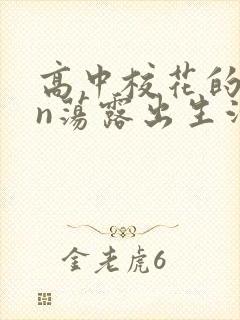 高中校花的
n荡露出生
金老虎6